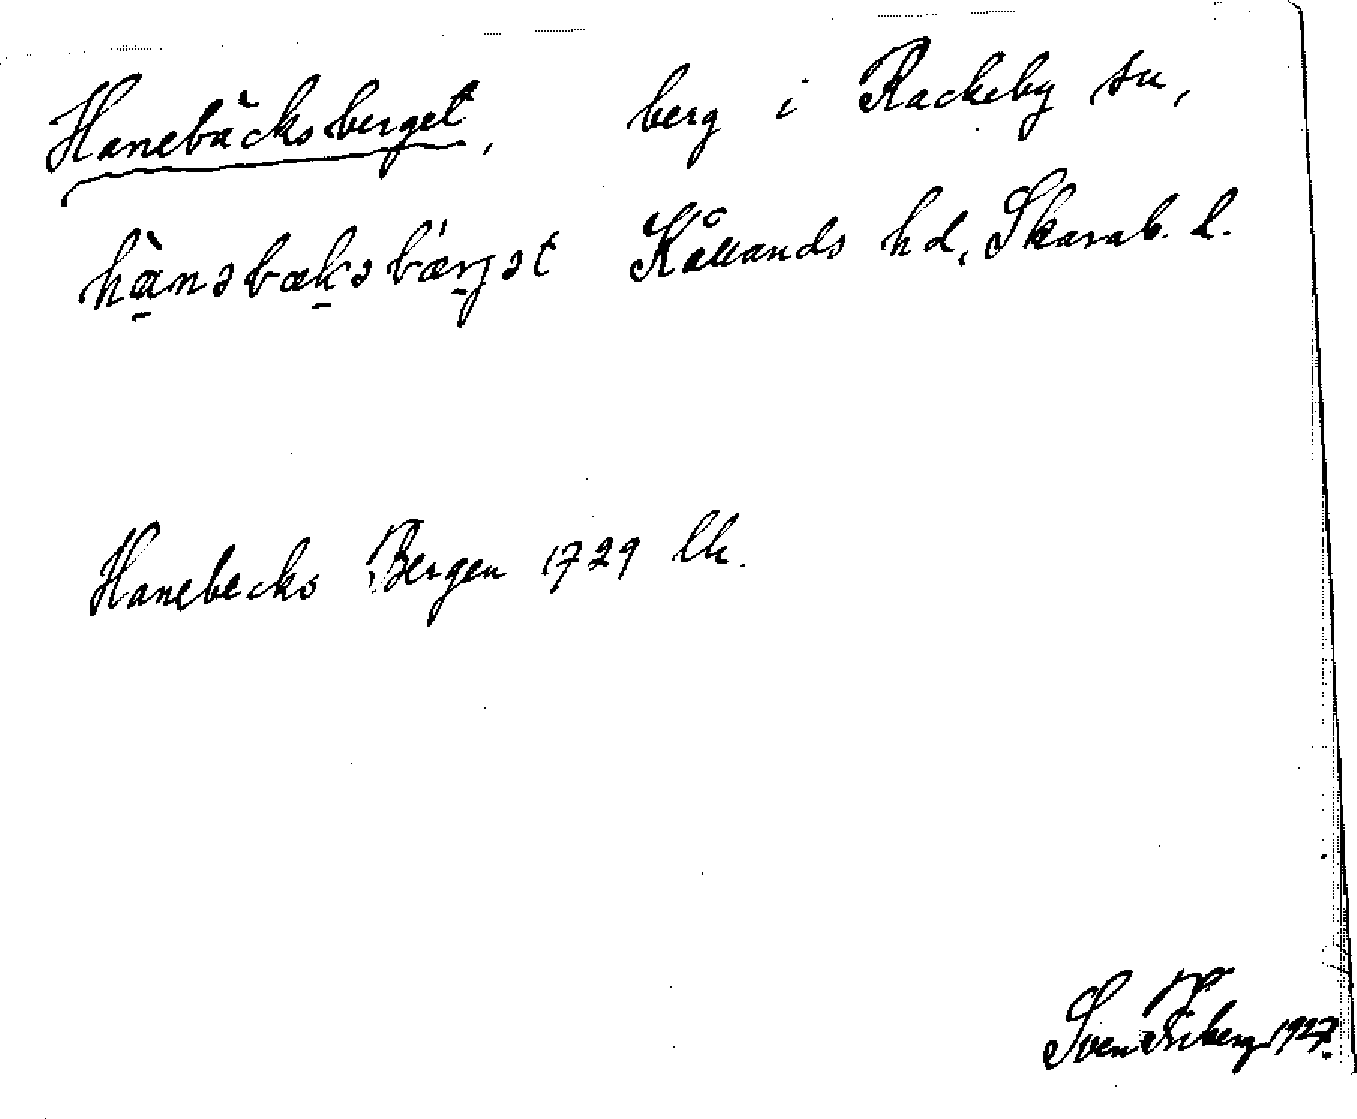 Hanebäcksberget, berg i Rackeby sn,
hànəbækəbǽrjət Kållands hd, Skarab. l.
Hanebecks Bergen 1729 lk.
Sven 1927.